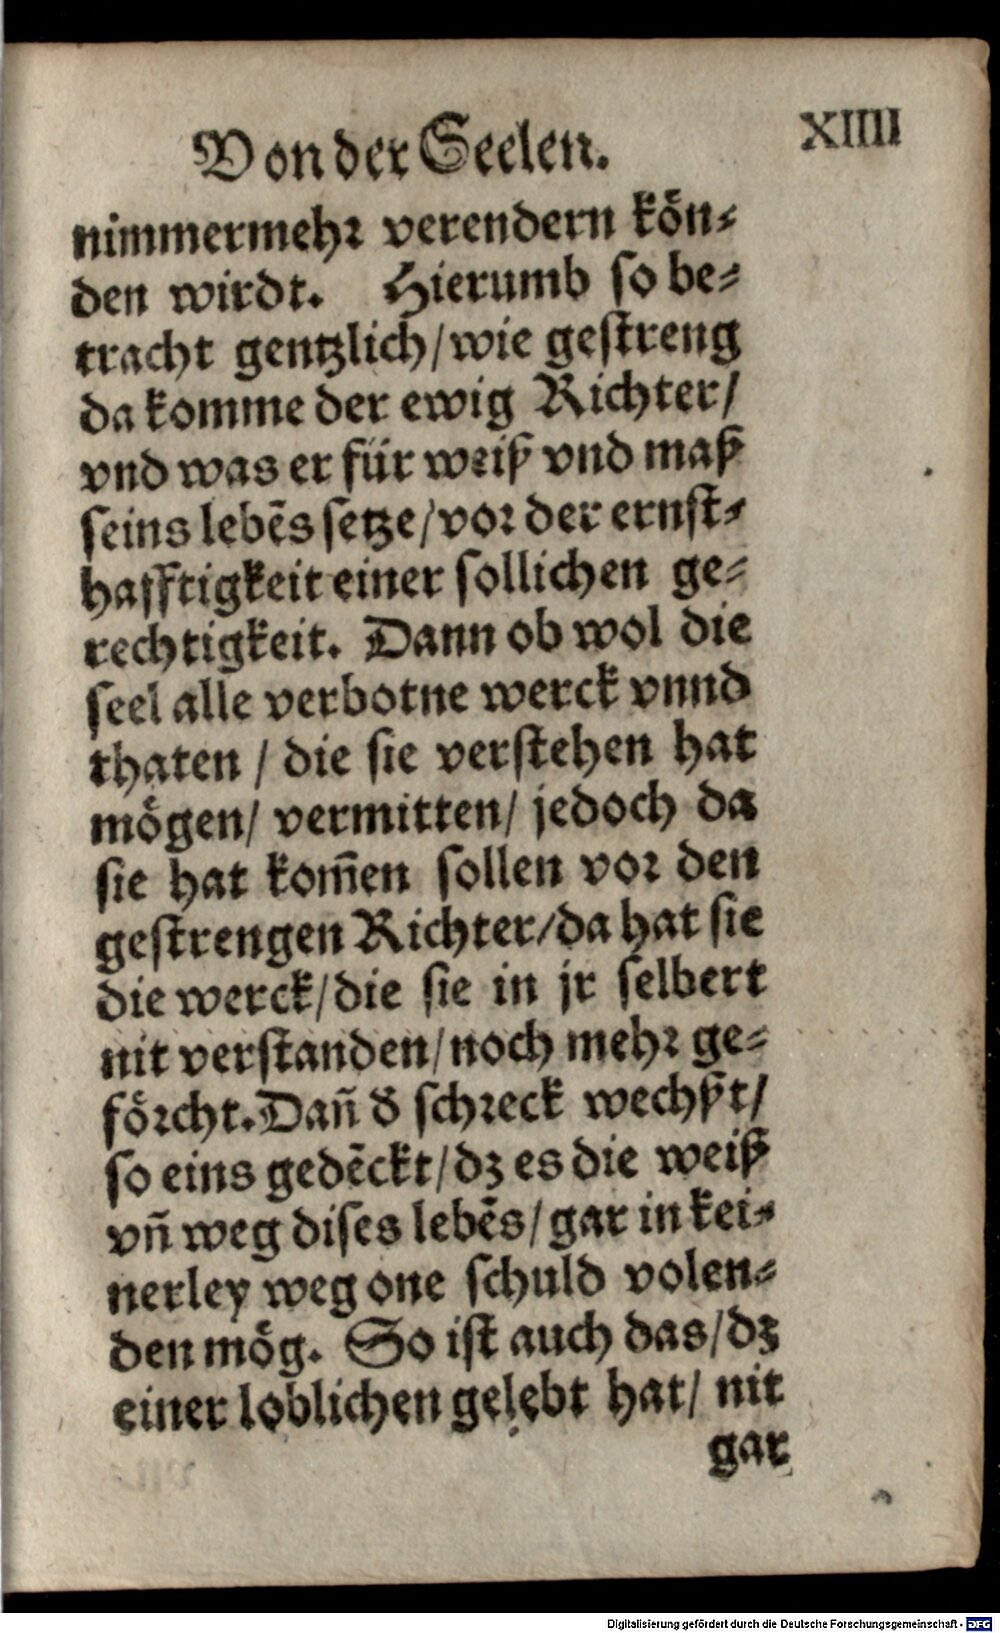 Von der Seelen.
XIIII
nimmermehr verendern kön⸗
den wirdt. Hierumb so be⸗
tracht gentzlich/ wie gestreng
da komme der ewig Richter/
vnd was er für weiß vnd maß
seins lebēs setze/ vor der ernst⸗
hafftigkeit einer sollichen ge⸗
rechtigkeit. Dann ob wol die
seel alle verbotne werck vnnd
thaten / die sie verstehen hat
mögen/ vermitten/ jedoch da
sie hat kom̄en sollen vor den
gestrengen Richter/ da hat sie
die werck/ die sie in jr selbert
nit verstanden/ noch mehr ge⸗
förcht. Dañ d̕ schreck wechßt/
so eins gedēckt/ dz es die weiß
vñ weg dises lebēs/ gar in kei⸗
nerley weg one schuld volen⸗
den mög. So ist auch das/ dz
einer loblichen gelebt hat/ nit
gar
Digitalisierung gefördert durch die Deutsche Forschungsgemeinschaft - DFG